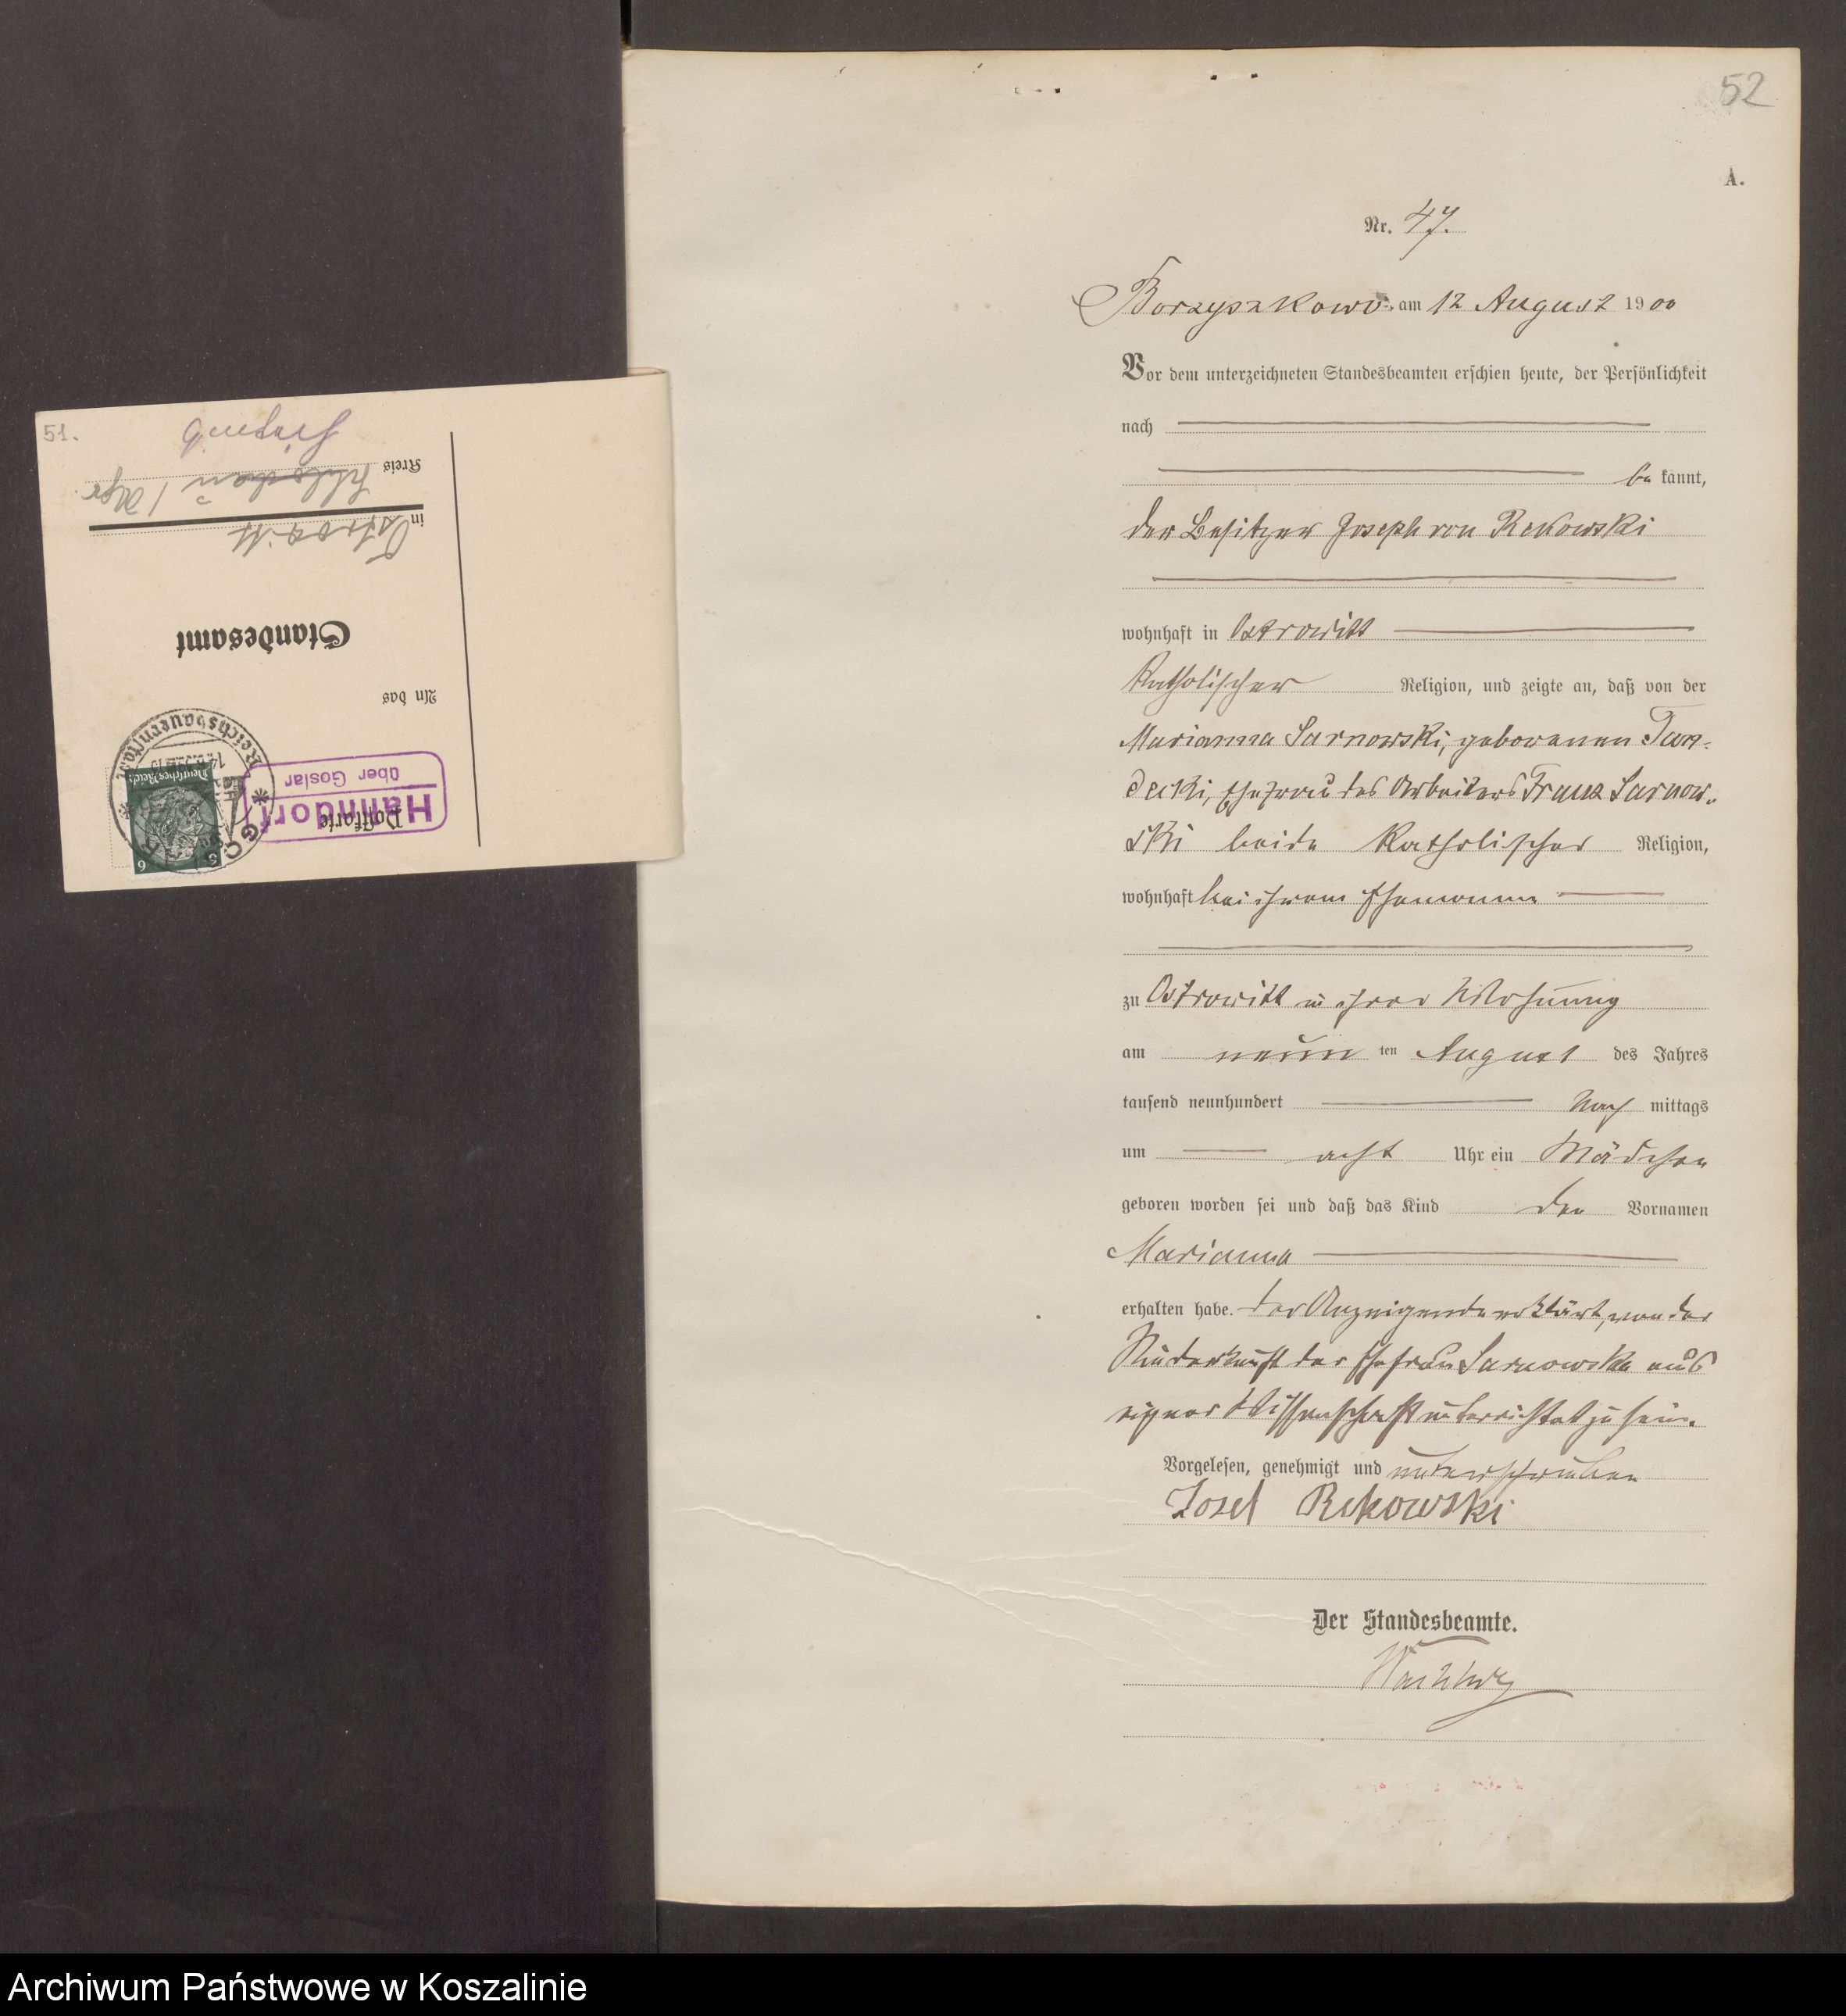 52
A.
Nr. 47.
Borzyszkowo am 12 August 1900
Vor dem unterzeichneten Standesbeamten erschien heute, der Persönlichkeit
nach
be kannt,
der Besitzer Joseph von Rekowski
wohnhaft in Ostrowitt
katholischer Religion, und zeigte an, daß von der
Marianna Sarnowski, geborenen
Ehefrau des Arbeiters Franz Sarnow-
ski beide katholischer Religion,
wohnhaft bei ihrem Ehemanne
zu Ostrowitt in ihrer Wohnung
am neun ten August des Jahres
tausend neunhundert Nach mittags
um acht Uhr ein Mädchen
geboren worden sei und daß das Kind den Vornamen
Marianna
erhalten habe. der Anzeigende erklärt, von der
Niederkunft der Ehefrau Sarnowska aus
eigner Wissenschaft unterrichtet zu sein.
Vorgelesen, genehmigt und unterschrieben
Josef Rekowski
Der Standesbeamte.
51.
Postkarte
Hahndorf
über Goslar
Deutsches Reich
6
Reichsbauernstadt
An das
Standesamt
in Ostrowitt
Kreis
Archiwum Państwowe w Koszalinie